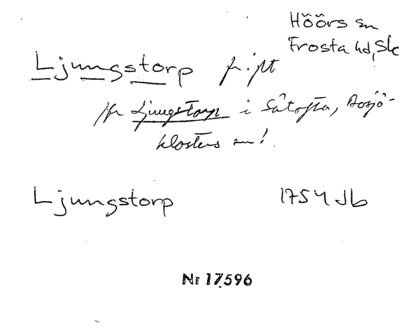 Höörs sn
Frosta hd, Sk
Ljungstorp fr. jt
fr Ljungstorp i Sätofta, Bosjö-
klosters sn!
Ljungstorp 1754 Jb
Nr 17596